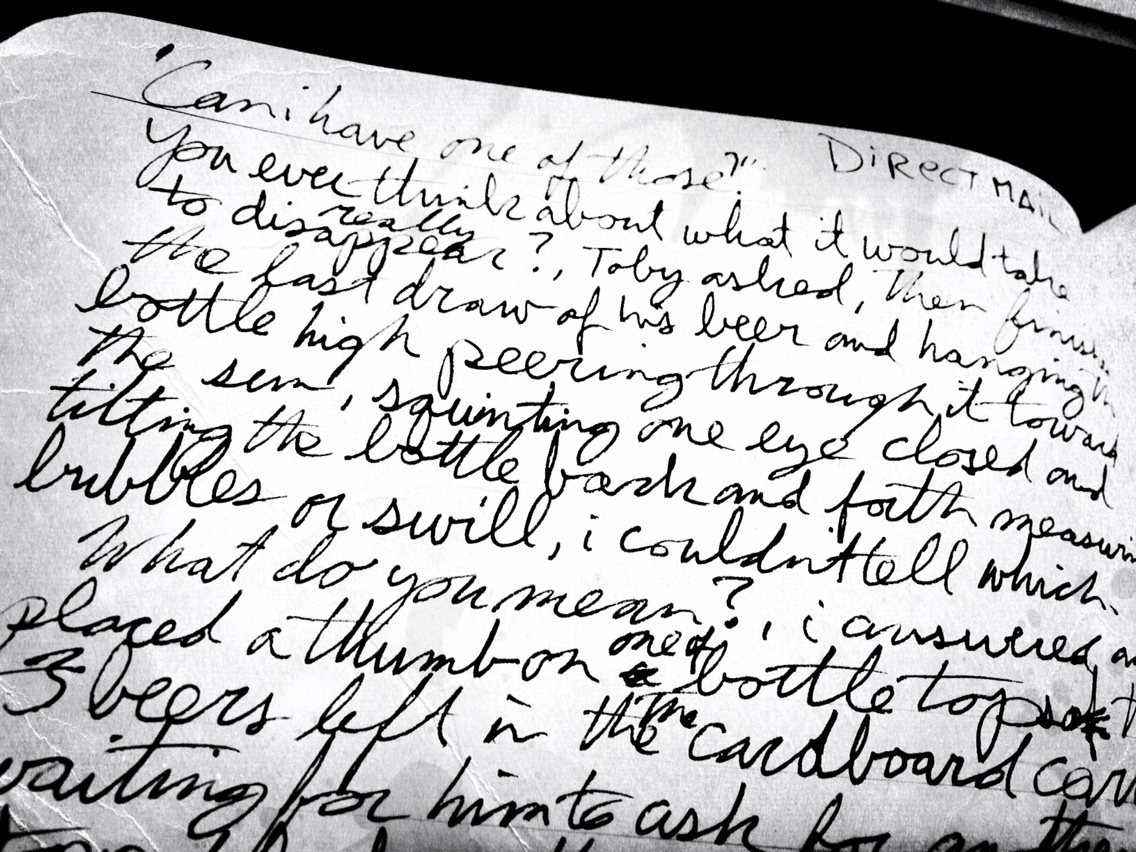 "Can i have one of those?" DIRECT MAIL
You ever think about what it would take
to really disappear?, Toby asked, then
the last draw of his beer and hanging
bottle high peering through it toward
the sun, squinting one eye closed and
tilting the bottle back and forth
bubbles or swill, i couldn't tell which.
What do you mean?, i answered,
placed a thumb on one of bottle tops
3 beers left in the cardboard
waiting for him to ask for